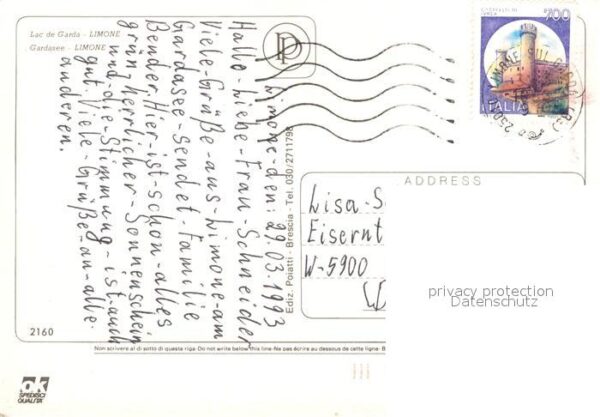 Lac de Garda - LIMONE
Gardasee - LIMONE
Limone-den: 29.03.1993
Hallo-Liebe-Frau-Schneider
Viele-Grüße-aus-Limone-am
Gardasee-sendet Familie
Bender. Hier-ist-schön-alles
grün, herrlicher-Sonnenschein
und-die-Stimmung-ist-auch
gut. Viele-Grüße-an-alle
anderen.
Ediz. Poiatti - Brescia - Tel. 030/2711798
700
ITALIA
ADDRESS
Lisa-S
Eisernt
W-5900
privacy protection
Datenschutz
2160
Non scrivere al di sotto di questa riga - Do not write below this line - Ne pas écrire au dessous de cette ligne
ok
SPEDISCI
QUALITÀ